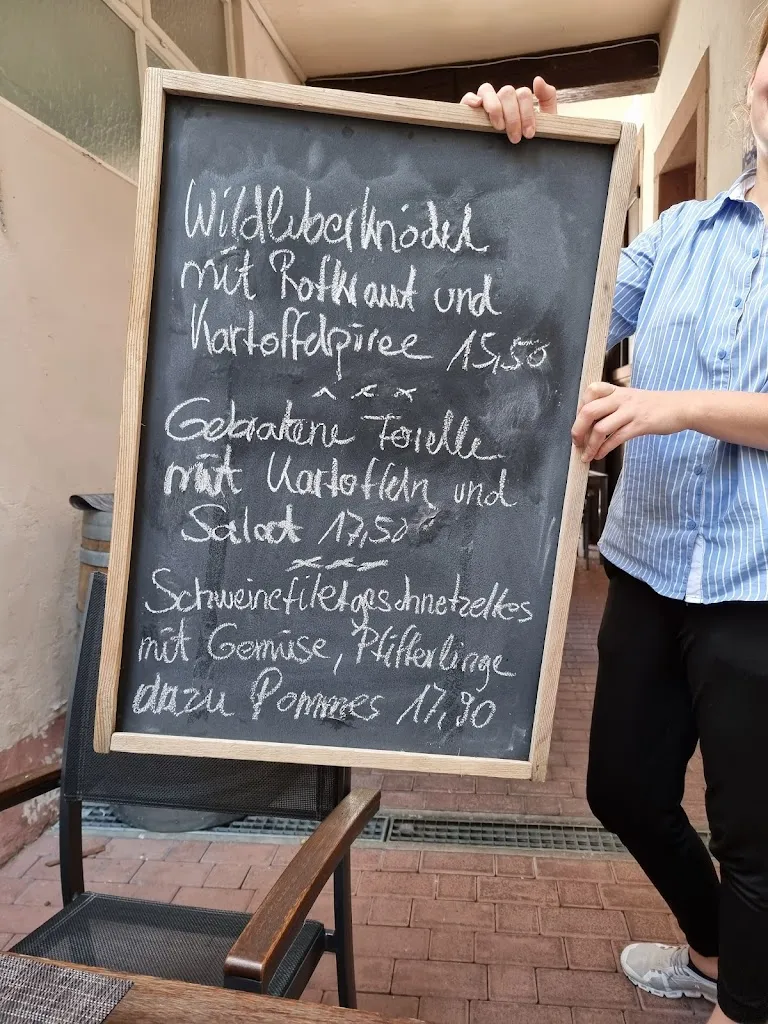 Wildleberknödel
mit Rotkraut und
Kartoffelpüree 15,50
x x x
Gebratene Forelle
mit Kartoffeln und
Salat 17,50
x x x
Schweinefiletgeschnetzeltes
mit Gemüse, Pfifferlinge
dazu Pommes 17,90